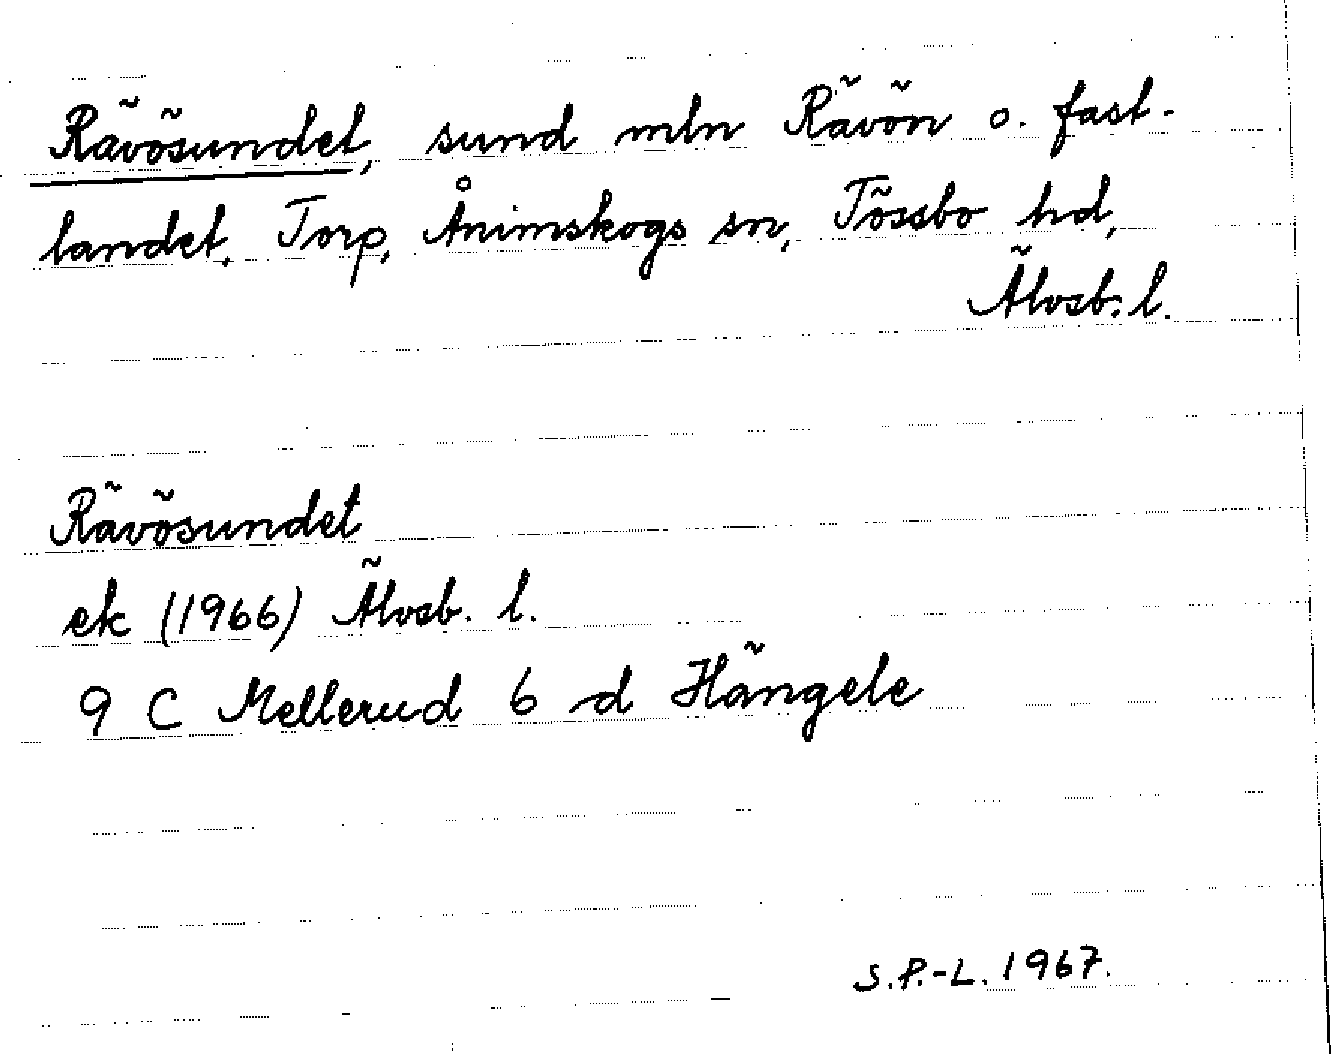 Rävösundet, sund mln Rävön o. fast-
landet, Torp, Ånimskogs sn, Tössbo hd,
Älvsb. l.
Rävösundet
ek (1966) Älvsb. l.
9 C Mellerud 6 d Hängele
S.P.-L. 1967.